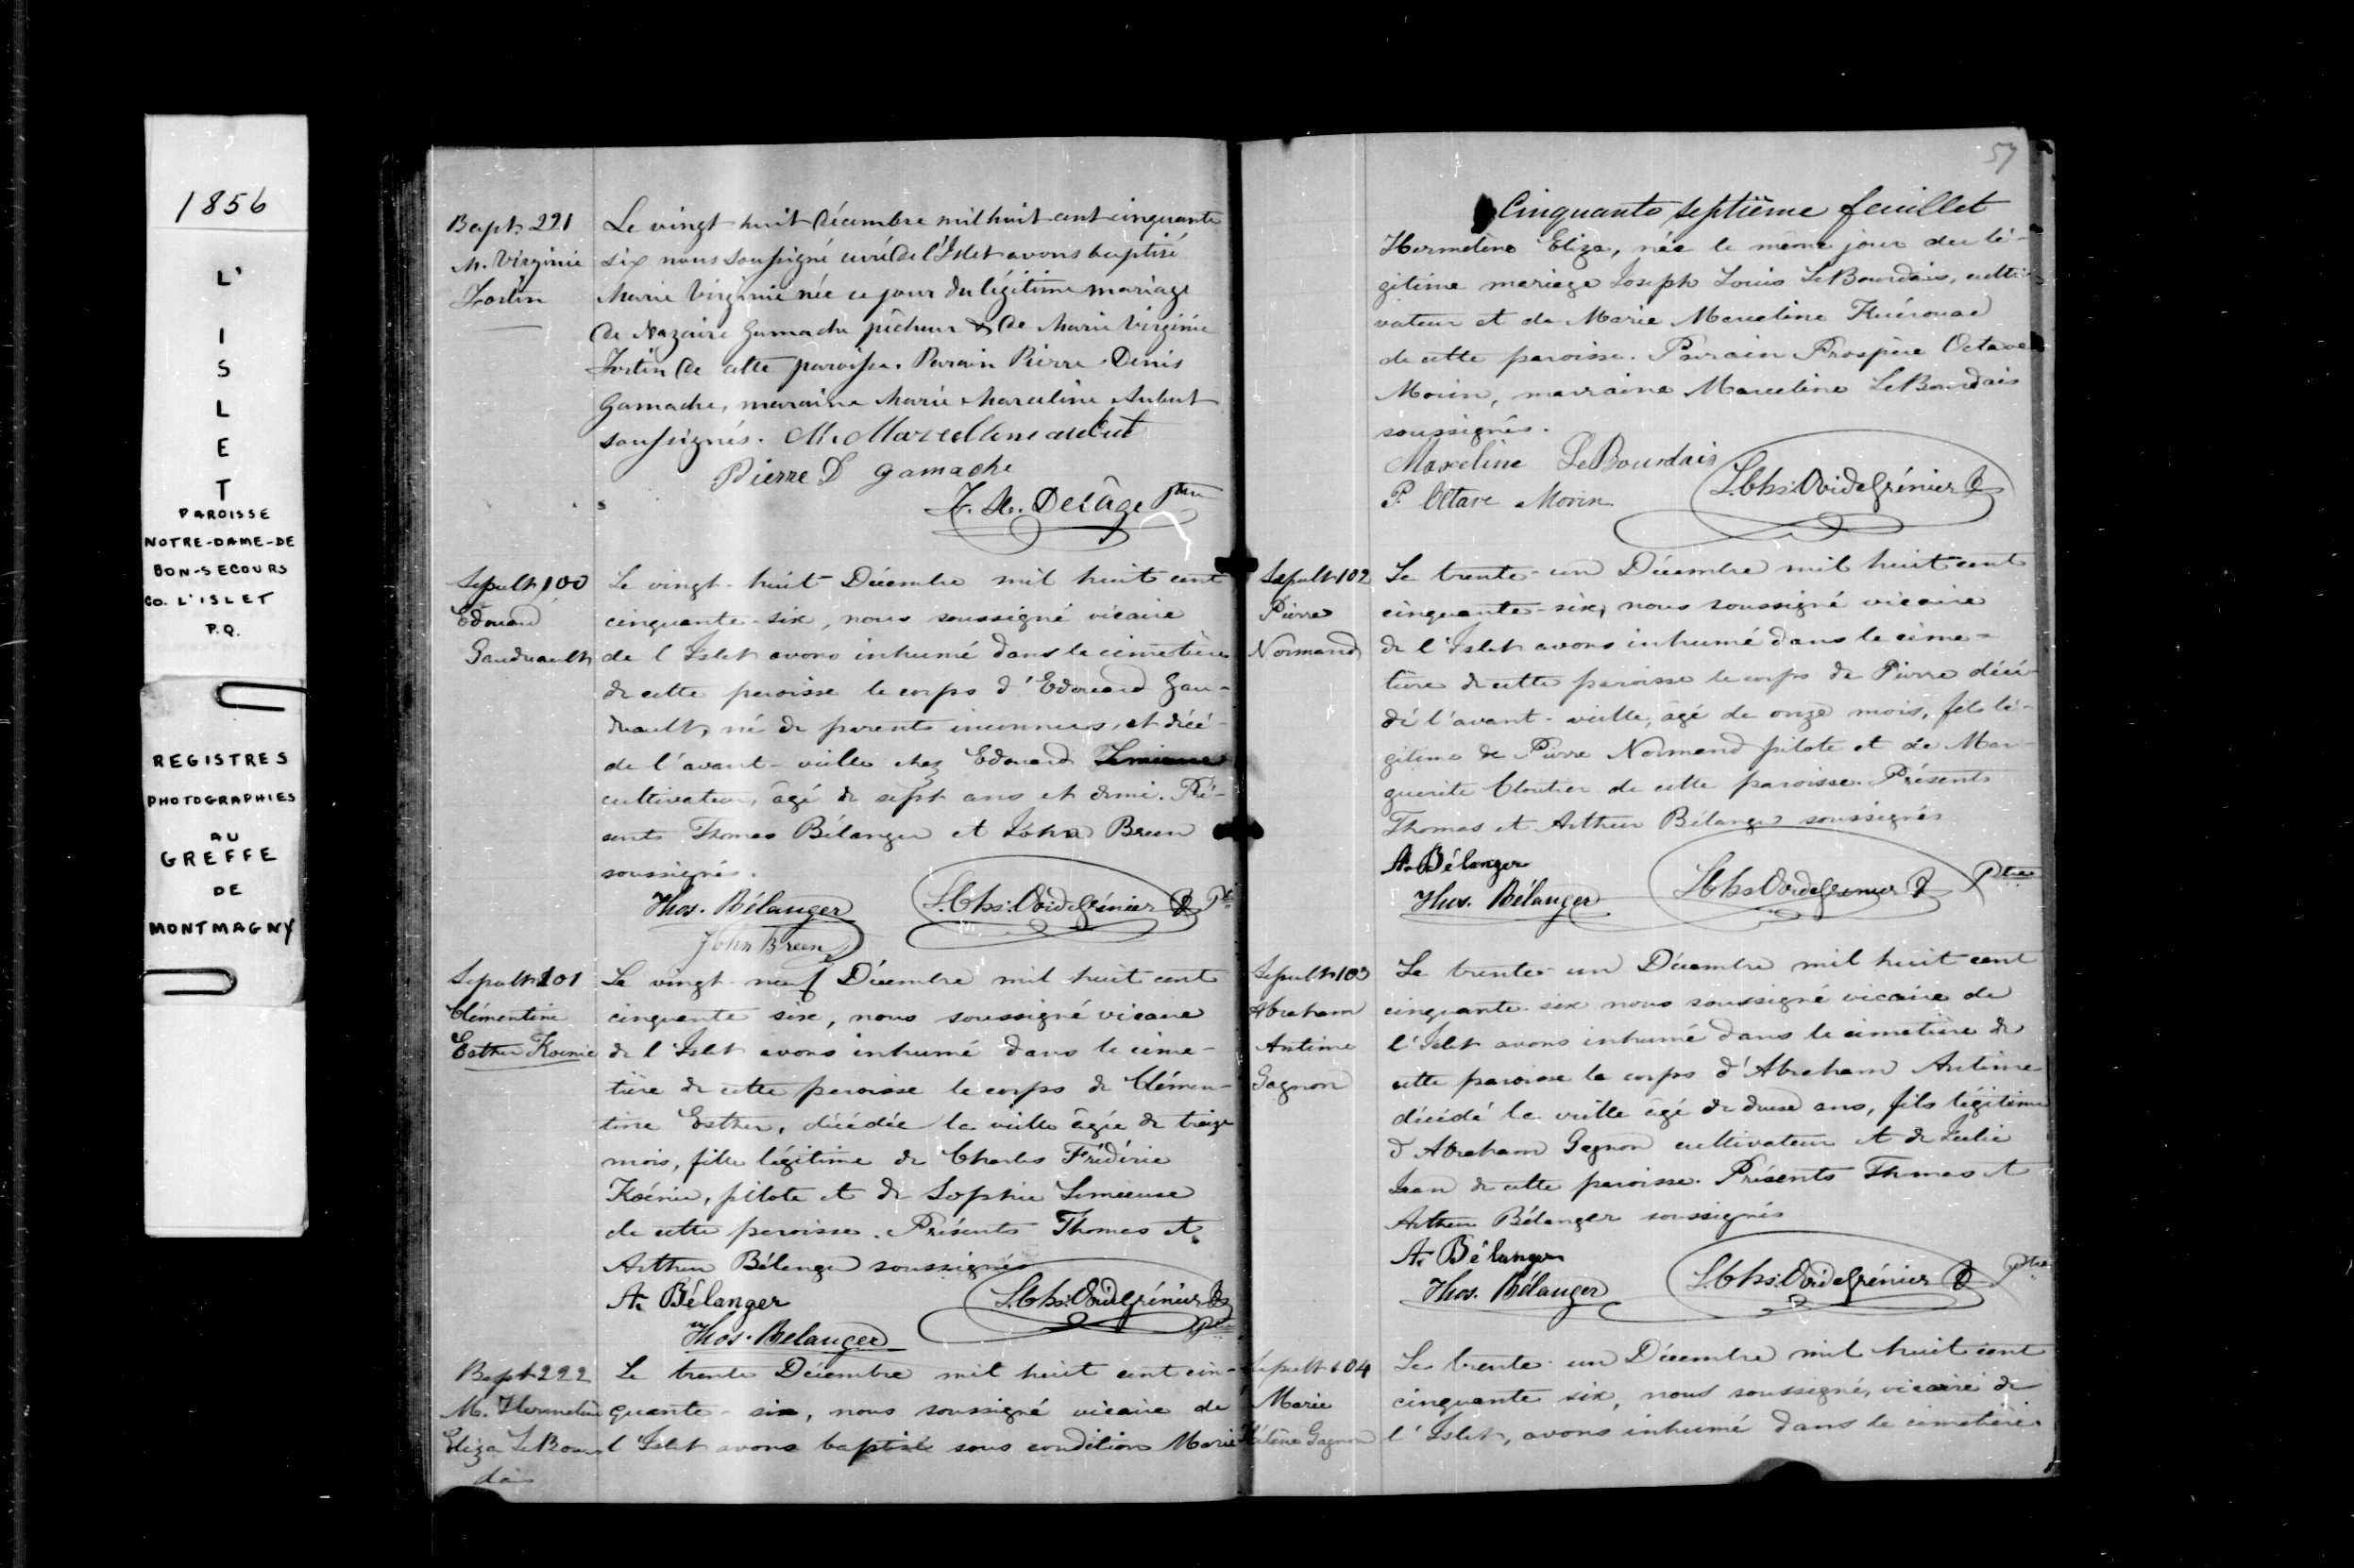 1856
L'
I
S
L
E
T
PAROISSE
NOTRE-DAME-DE
BON-SECOURS
CO. L'ISLET
P.Q.
REGISTRES
PHOTOGRAPHIES
AU
GREFFE
DE
MONTMAGNY
Bapt. 221
M. Virginie
Fortin
Le vingt huit Décembre mil huit cent cinquante
six nous soussigné curé de l'Islet avons baptisé
Marie Virginie née ce jour du légitime mariage
de Nazaire Gamache pêcheur & de Marie Virginie
Fortin de cette paroisse. Parain Pierre Denis
Gamache, maraine Marie Marceline Aubut
soussignés. M. Marcelline aubut
Pierre D gamache
F. X. Delâge Ptre
Sepult. 100
Edouard
Gaudreault
Le vingt-huit Décembre mil huit cent
cinquante-six, nous soussigné vicaire
de l'Islet avons inhumé dans le cimetière
de cette paroisse le corps d'Edouard Gau-
dreault, né de parents inconnus, et décé-
dé l'avant-veille chez Edouard Lemieux
cultivateur, âgé de sept ans et demi. Pré-
sents Thomas Bélanger et John Breen
soussignés.
Thos. Bélanger
L. Chs: Ovide Grénier Ptre
John Breen
Sepult. 101
Clémentine
Esther Koenic
Le vingt-neuf Décembre mil huit cent
cinquante six, nous soussigné vicaire
de l'Islet avons inhumé dans le cime-
tière de cette paroisse le corps de Clémen-
tine Esther, décédée la veille âgée de treize
mois, fille légitime de Charles Frédéric
Koénic, pilote et de Sophie Lemieux
de cette paroisse. Présents Thomas et
Arthur Bélanger soussignés
A. Bélanger
L. Chs: Ovide Grénier Ptre
Thos. Belanger
Bapt. 222
M. Hermeline
Eliza LeBour
dais
Le trente Décembre mil huit cent cin-
quante-six, nous soussigné vicaire de
l'Islet avons baptisé sous condition Marie
57
Cinquante septième feuillet
Hermeline Eliza, née le même jour du lé-
gitime mariage Joseph Louis LeBourdais, culti-
vateur et de Marie Marceline Kuérouac
de cette paroisse. Parrain Prospère Octave
Morin, marraine Marceline LeBourdais
soussignés.
Marceline LeBourdais
P. Octave Morin
L. Chs: Ovide Grénier
Sepult. 102
Pierre
Normand
Le trente-un Décembre mil huit cent
cinquante-six, nous soussigné vicaire
de l'Islet avons inhumé dans le cime-
tière de cette paroisse le corps de Pierre décé-
dé l'avant-veille, âgé de onze mois, fils lé-
gitime de Pierre Normand pilote et de Mar-
guerite Cloutier de cette paroisse. Présents
Thomas et Arthur Bélanger soussignés
A. Bélanger
Thos. Bélanger
L. Chs: Ovide Grénier Ptre
Sepult. 103
Abraham
Antime
Gagnon
Le trente-un Décembre mil huit cent
cinquante-six nous soussigné vicaire de
l'Islet avons inhumé dans le cimetière de
cette paroisse le corps d'Abraham Antime
décédé la veille âgé de deux ans, fils légitime
d'Abraham Gagnon cultivateur et de Julie
Jean de cette paroisse. Présents Thomas et
Arthur Bélanger soussignés
A. Bélanger
Thos. Bélanger
L. Chs: Ovide Grénier Ptre
Sepult. 104
Marie
Hélène Gagnon
Le trente-un Décembre mil huit cent
cinquante six, nous soussigné, vicaire de
l'Islet, avons inhumé dans le cimetière